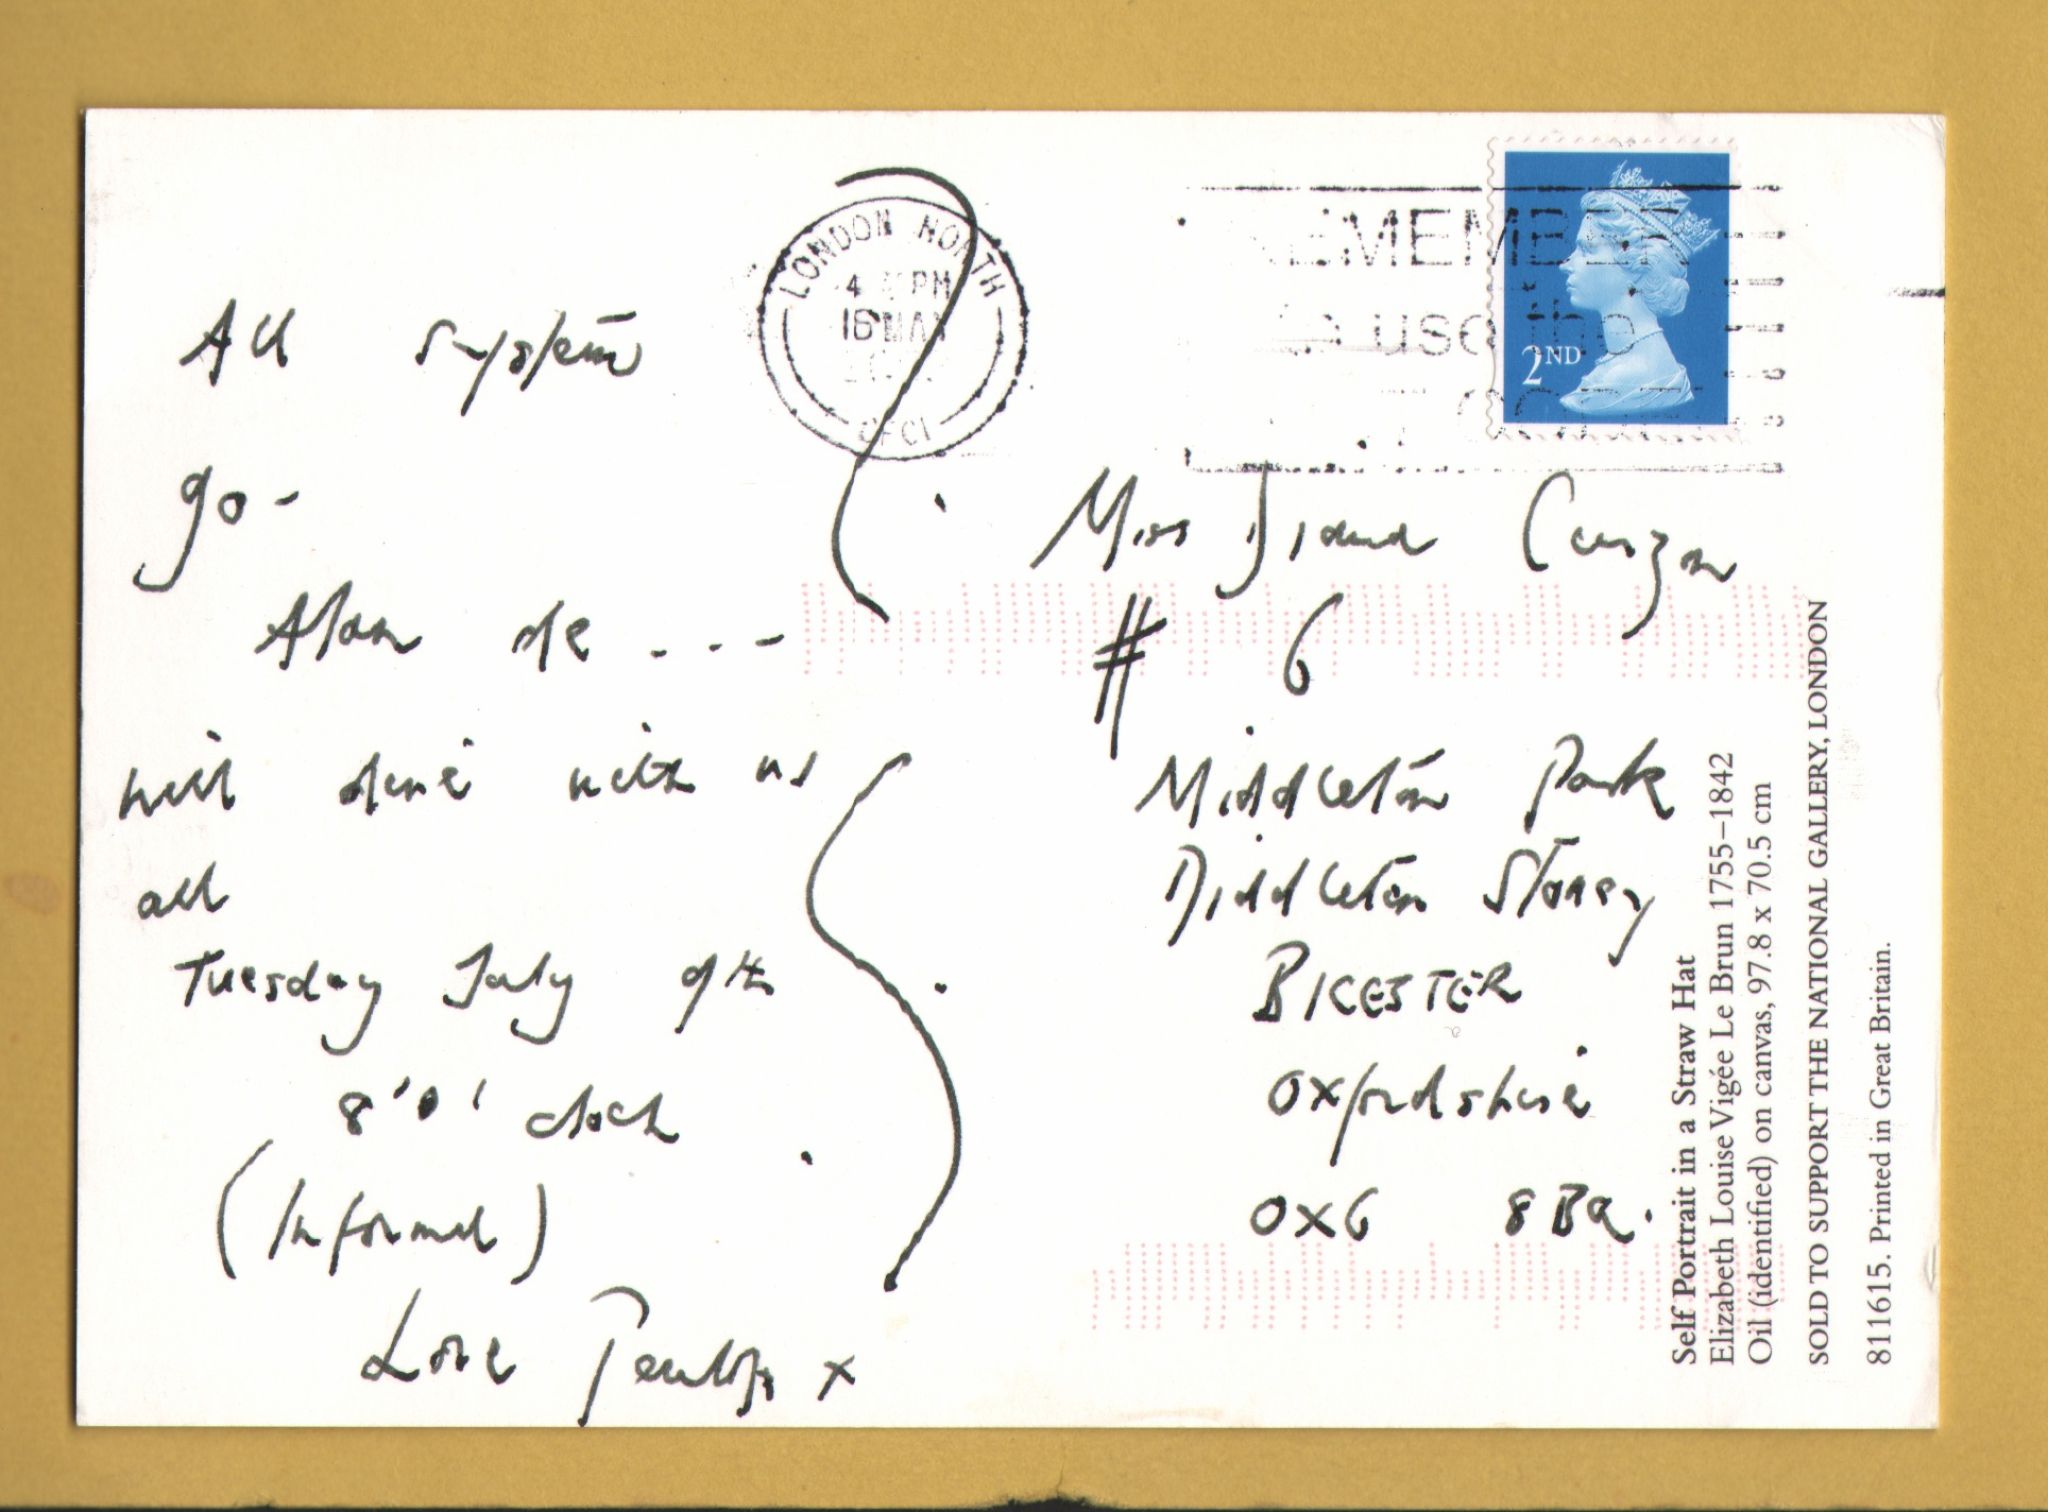 All system
go -
Alan de . . .
will dine with us
all
Tuesday July 9th
8 'o' clock
(Informal)
Love Penelope x
LONDON NORTH
4 PM
16 MAY
CFC1
REMEMBER
to use the
2ND
Miss Diana Curzon
# 6
Middleton Park
Middleton Stoney
BICESTER
Oxfordshire
OX6 8BQ.
Self Portrait in a Straw Hat
Elizabeth Louise Vigée Le Brun 1755–1842
Oil (identified) on canvas, 97.8 x 70.5 cm
SOLD TO SUPPORT THE NATIONAL GALLERY, LONDON
811615. Printed in Great Britain.